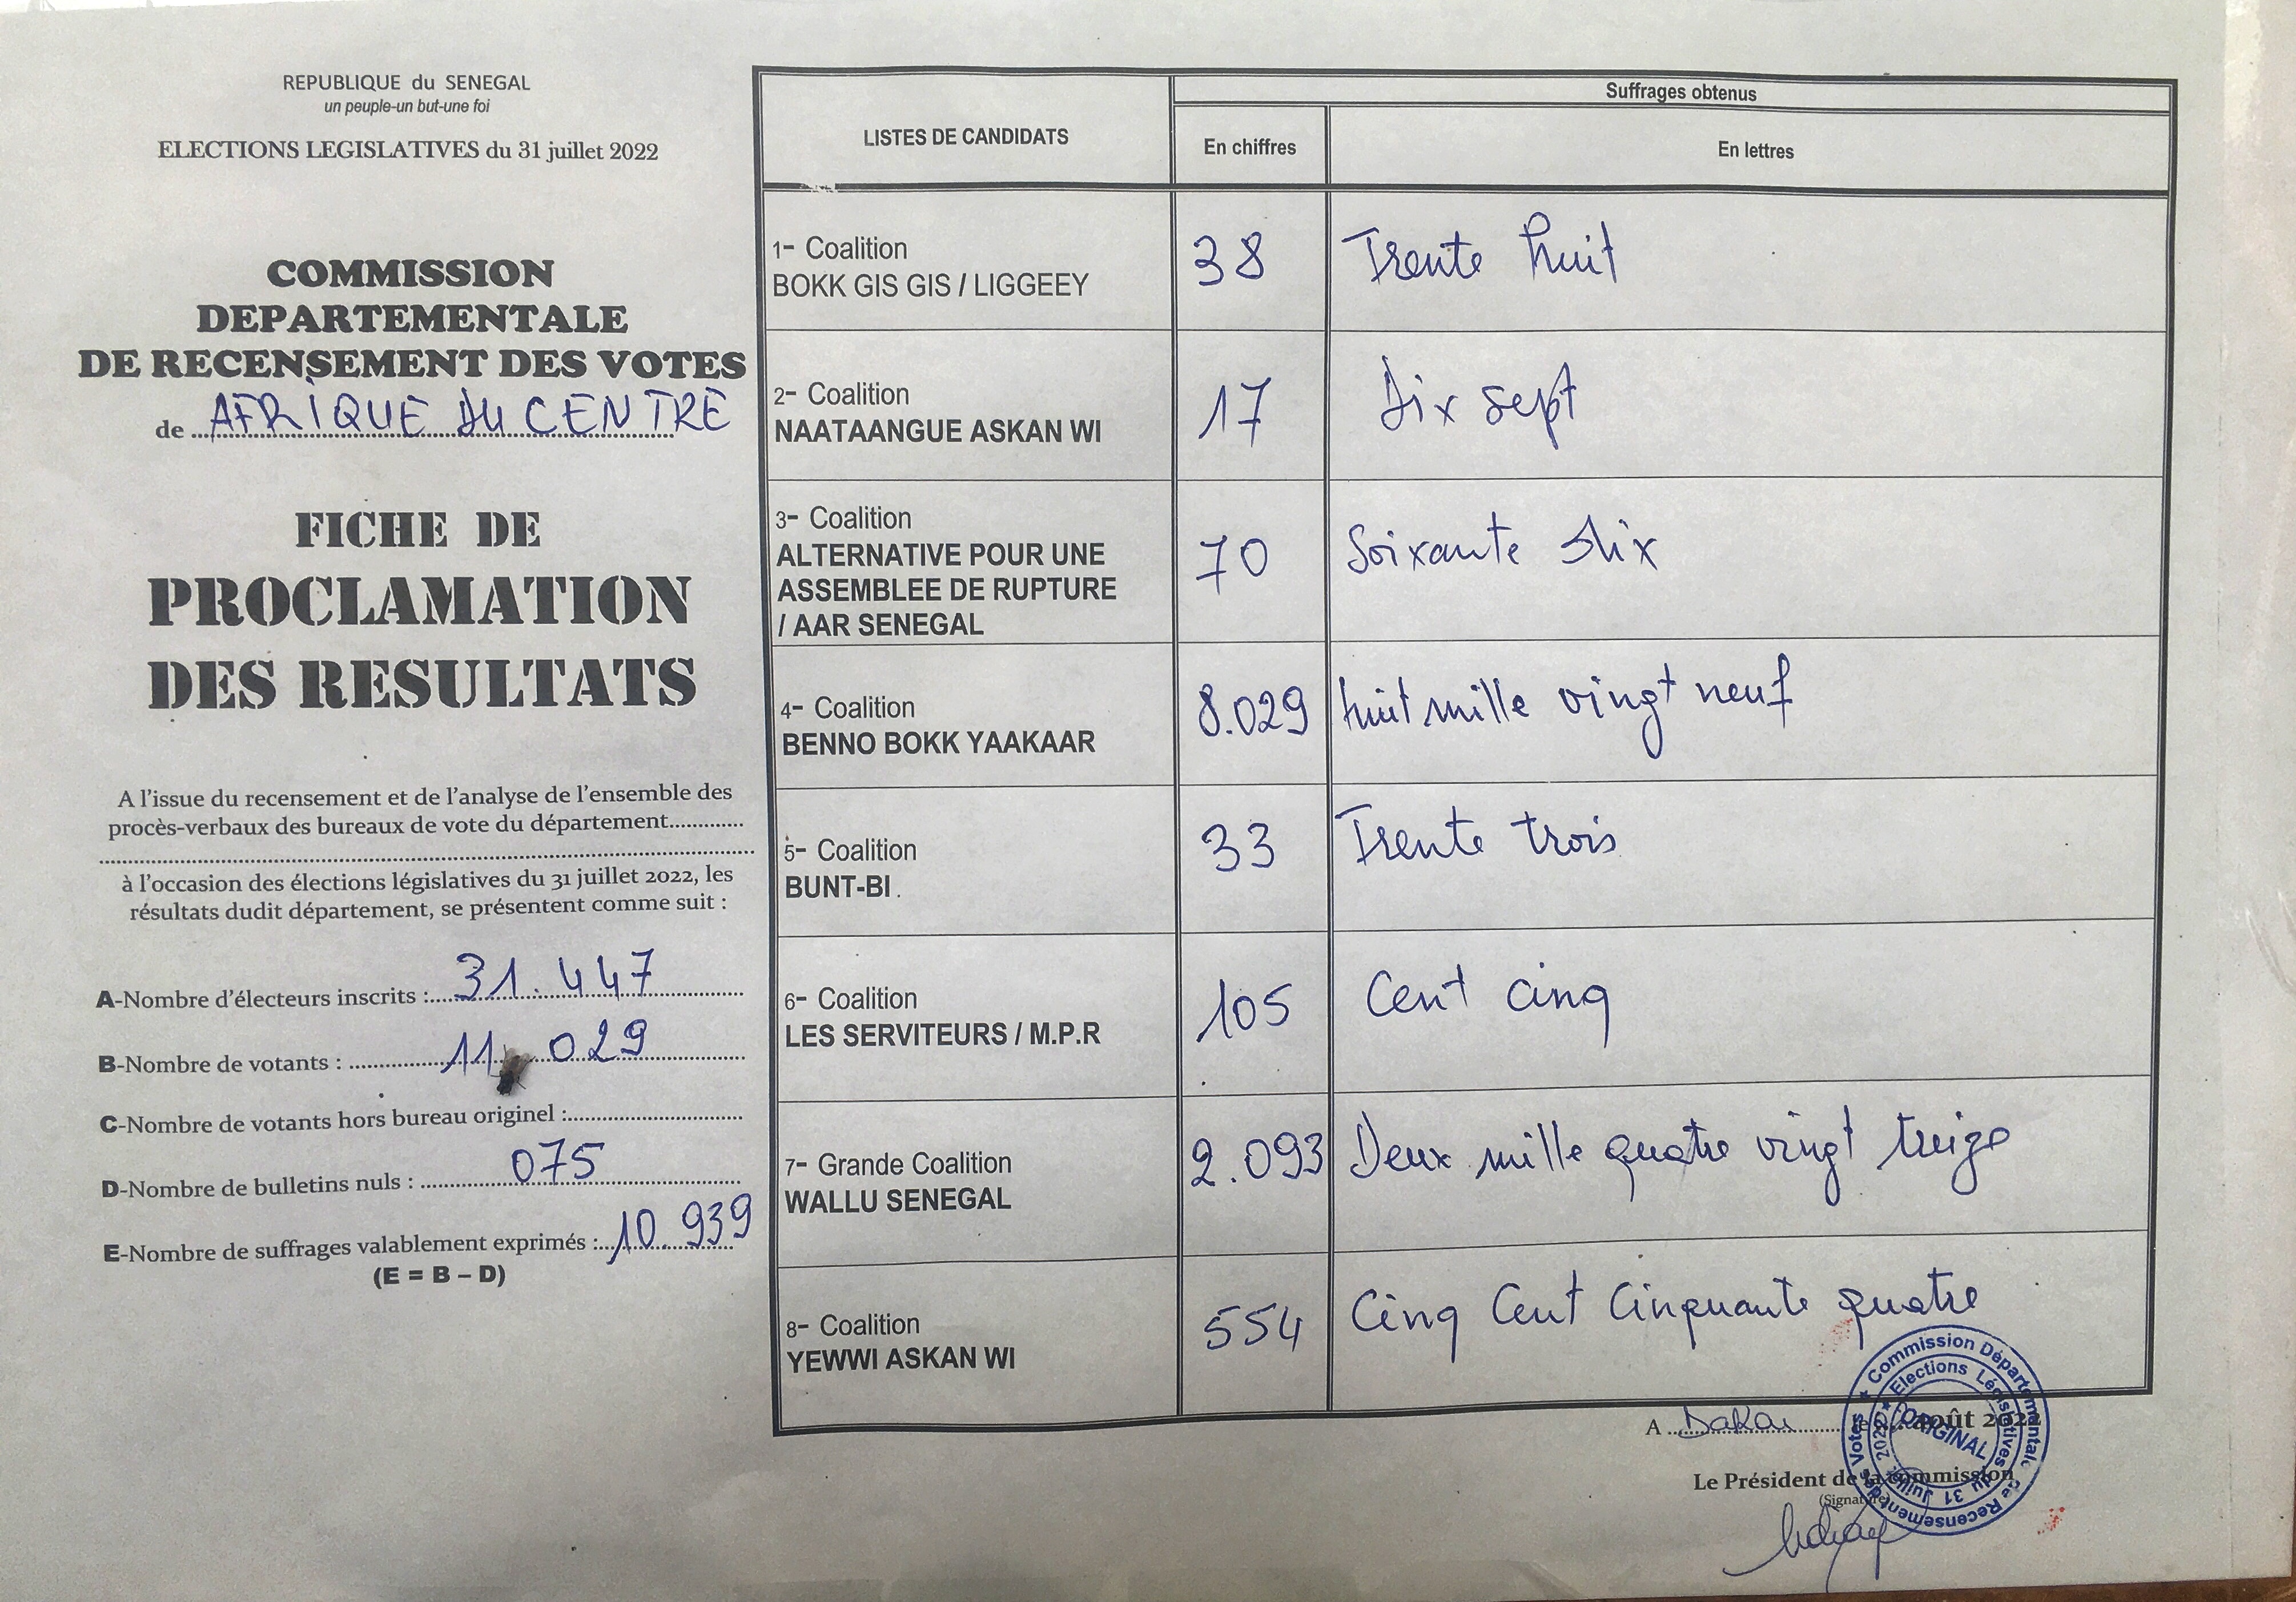 REPUBLIQUE du SENEGAL
un peuple-un but-une foi
ELECTIONS LEGISLATIVES du 31 juillet 2022
COMMISSION
DEPARTEMENTALE
DE RECENSEMENT DES VOTES
de AFRIQUE DU CENTRE
FICHE DE
PROCLAMATION
DES RESULTATS
A l'issue du recensement et de l'analyse de l'ensemble des
procès-verbaux des bureaux de vote du département.............
à l'occasion des élections législatives du 31 juillet 2022, les
résultats dudit département, se présentent comme suit :
A-Nombre d'électeurs inscrits : 31.447
B-Nombre de votants : 11 029
C-Nombre de votants hors bureau originel :
D-Nombre de bulletins nuls : 075
E-Nombre de suffrages valablement exprimés : 10.939
(E = B – D)
LISTES DE CANDIDATS
Suffrages obtenus
En chiffres
En lettres
1- Coalition
BOKK GIS GIS / LIGGEEY
38
Trente huit
2- Coalition
NAATAANGUE ASKAN WI
17
Dix sept
3- Coalition
ALTERNATIVE POUR UNE
ASSEMBLEE DE RUPTURE
/ AAR SENEGAL
70
Soixante dix
4- Coalition
BENNO BOKK YAAKAAR
8.029
huit mille vingt neuf
5- Coalition
BUNT-BI
33
Trente trois
6- Coalition
LES SERVITEURS / M.P.R
105
Cent cinq
7- Grande Coalition
WALLU SENEGAL
2.093
Deux mille quatre vingt treize
8- Coalition
YEWWI ASKAN WI
554
Cinq Cent Cinquante quatre
A Dakar août 2022
Le Président de la commission
(Signature)
Commission Départementale de Recensement des Votes
Elections Législatives du 31 Juillet 2022
ORIGINAL